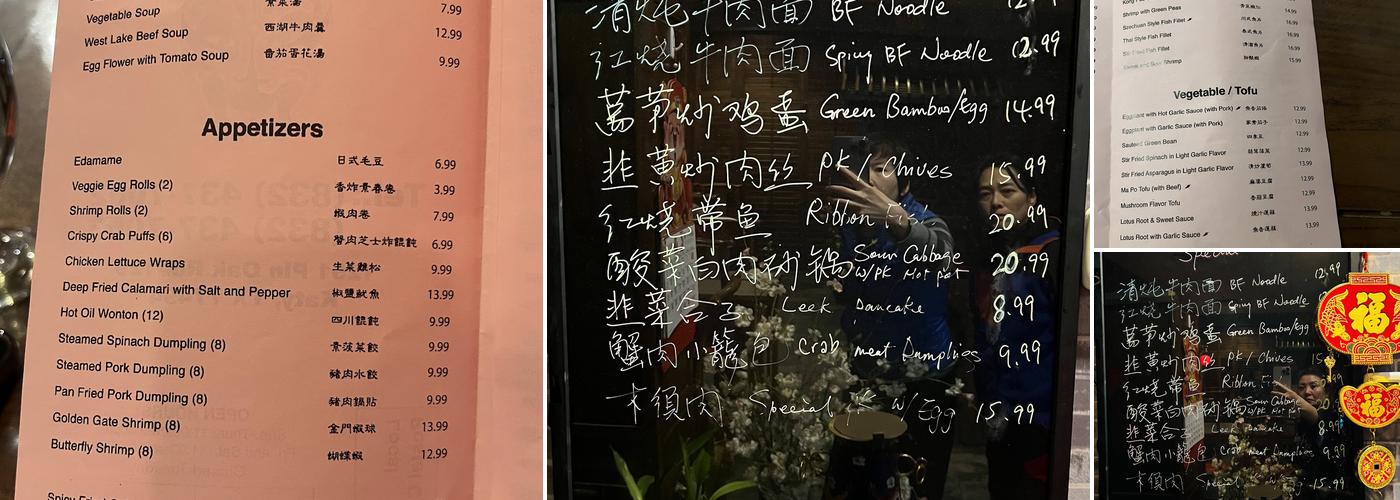 Vegetable Soup 素菜湯 7.99
West Lake Beef Soup 西湖牛肉羹 12.99
Egg Flower with Tomato Soup 番茄蛋花湯 9.99
Appetizers
Edamame 日式毛豆 6.99
Veggie Egg Rolls (2) 香炸素春卷 3.99
Shrimp Rolls (2) 蝦肉卷 7.99
Crispy Crab Puffs (6) 蟹肉芝士炸餛飩 6.99
Chicken Lettuce Wraps 生菜雞松 9.99
Deep Fried Calamari with Salt and Pepper 椒鹽魷魚 13.99
Hot Oil Wonton (12) 四川餛飩 9.99
Steamed Spinach Dumpling (8) 素菠菜餃 9.99
Steamed Pork Dumpling (8) 豬肉水餃 9.99
Pan Fried Pork Dumpling (8) 豬肉鍋貼 9.99
Golden Gate Shrimp (8) 金門蝦球 13.99
Butterfly Shrimp (8) 蝴蝶蝦 12.99
清炖牛肉面 BF Noodle
红烧牛肉面 Spicy BF Noodle 12.99
萵笋炒鸡蛋 Green Bamboo/Egg 14.99
韭黄炒肉丝 PK / Chives 15.99
红烧带鱼 Ribbon Fish 20.99
酸菜白肉砂锅 Sour Cabbage w/pk Hot pot 20.99
韭菜合子 Leek Pancake 8.99
蟹肉小籠包 Crab meat Dumplings 9.99
木須肉 Special w/ Egg 15.99
Shrimp with Green Peas 14.99
Szechuan Style Fish Fillet 16.99
Thai Style Fish Fillet 16.99
Stir Fried Fish Fillet 16.99
Sweet and Sour Shrimp 15.99
Vegetable / Tofu
Eggplant with Hot Garlic Sauce (with Pork) 魚香茄子 12.99
Eggplant with Garlic Sauce (with Pork) 12.99
Sauteed Green Bean 四季豆 12.99
Stir Fried Spinach in Light Garlic Flavor 蒜茸菠菜 12.99
Stir Fried Asparagus in Light Garlic Flavor 清炒蘆筍 13.99
Ma Po Tofu (with Beef) 麻婆豆腐 12.99
Mushroom Flavor Tofu 香菇豆腐 12.99
Lotus Root & Sweet Sauce 13.99
Lotus Root with Garlic Sauce 魚香蓮藕 13.99
Special
清炖牛肉面 BF Noodle 12.99
红烧牛肉面 Spicy BF Noodle
萵笋炒鸡蛋 Green Bamboo/Egg
韭黄炒肉丝 PK / Chives
红烧带鱼 Ribbon Fish
酸菜白肉砂锅 Sour Cabbage w/pk Hot pot
韭菜合子 Leek Pancake 8.99
蟹肉小籠包 Crab meat Dumplings 9.99
木須肉 Special w/ Egg 15.99
福
福